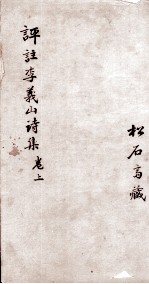 評註李義山詩集 卷上
松石高藏